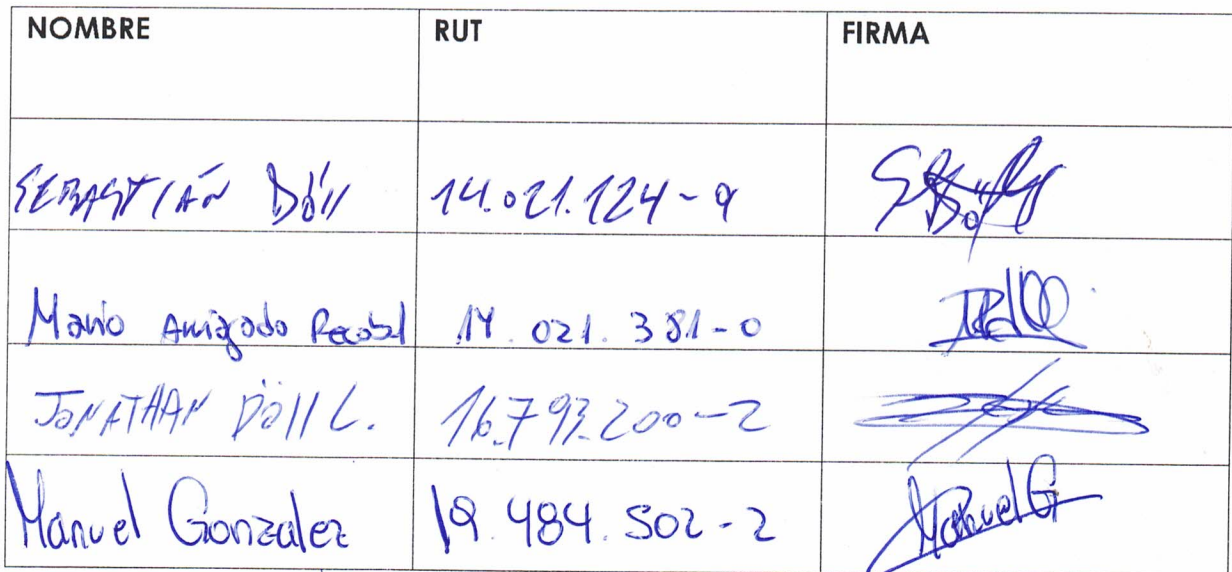 NOMBRE RUT FIRMA
SEBASTIÁN Döll 14.021.124-9
Mario Amigado Recabal 14.021.381-0
JONATHAN Döll L. 16.793.200-2
Manuel Gonzalez 19.484.502-2 Manuel G